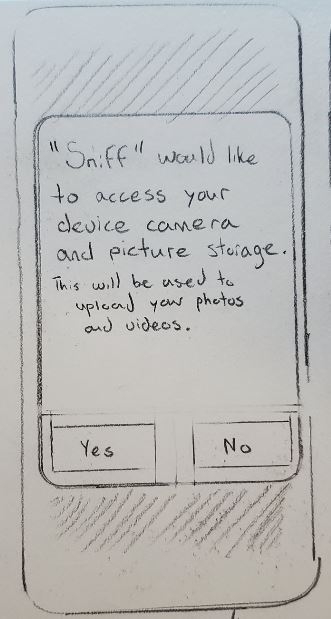 "Sniff" would like
to access your
device camera
and picture storage.
This will be used to
upload your photos
and videos.
Yes No